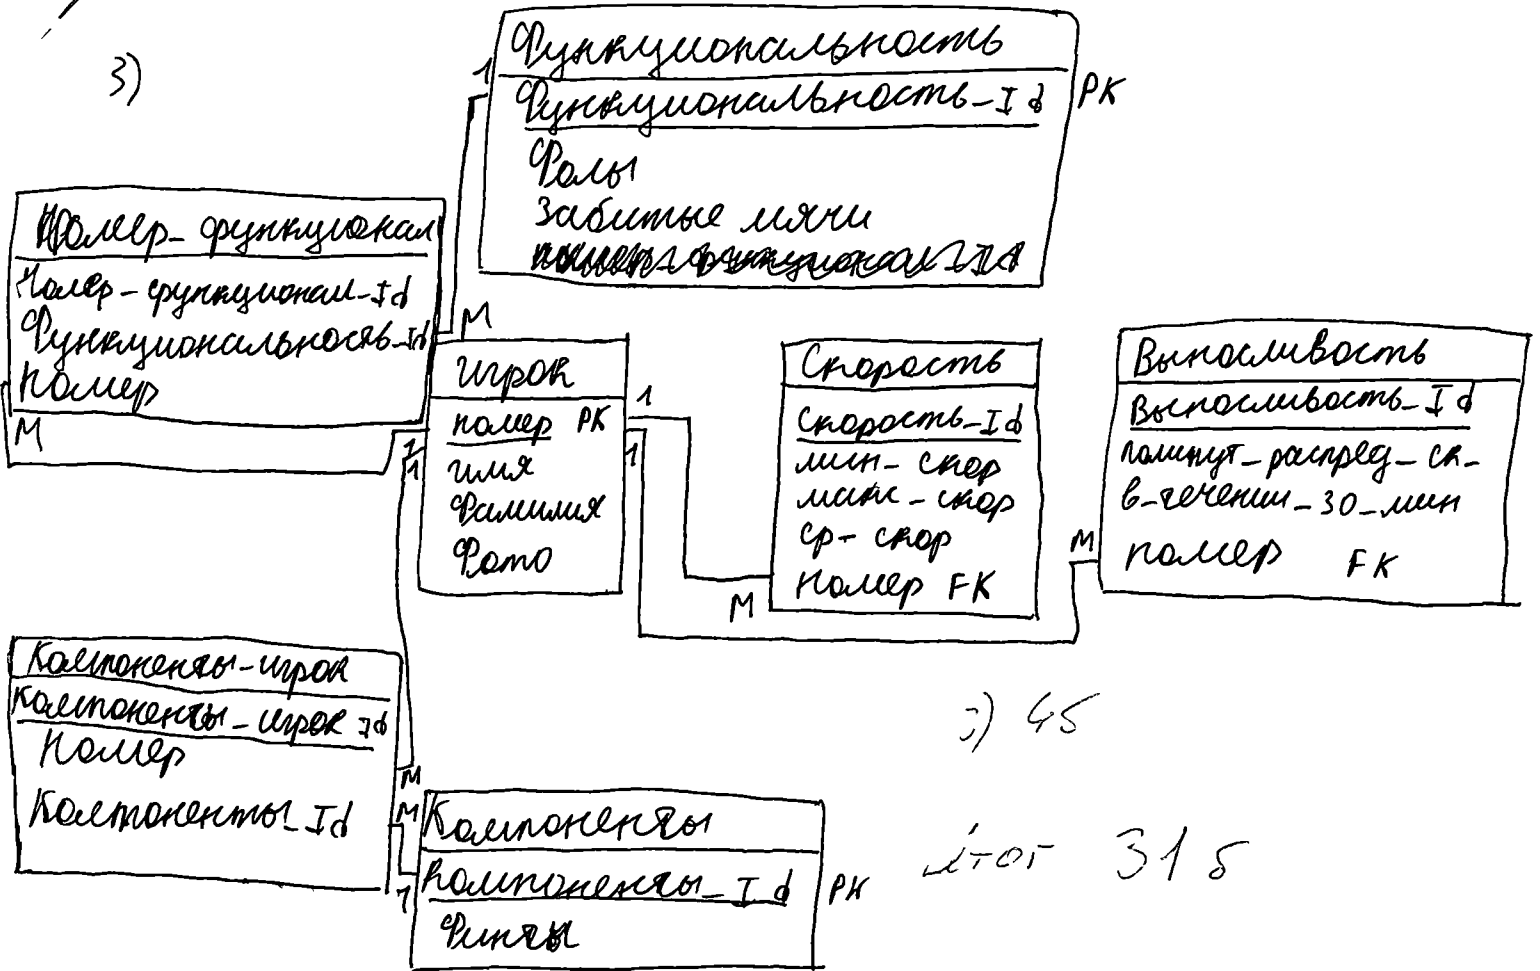 3)
Функциональность
1
Функциональность_Id PK
Фолы
Забитые мячи
Номер_функционал
Номер_функционал_Id
Функциональность_Id
Номер
M
M
игрок
номер PK
имя
Фамилия
Фото
1
1
1
1
Скорость
Скорость_Id
мин_скор
макс_скор
ср_скор
Номер FK
M
Выносливость
Выносливость_Id
поминут_распред_ск_
в_течении_30_мин
номер FK
M
Компоненты_игрок
Компоненты_игрок Id
Номер
Компоненты_Id
M
M
1
Компоненты
Компоненты_Id PK
Финты
:) 4б
итог 31 б